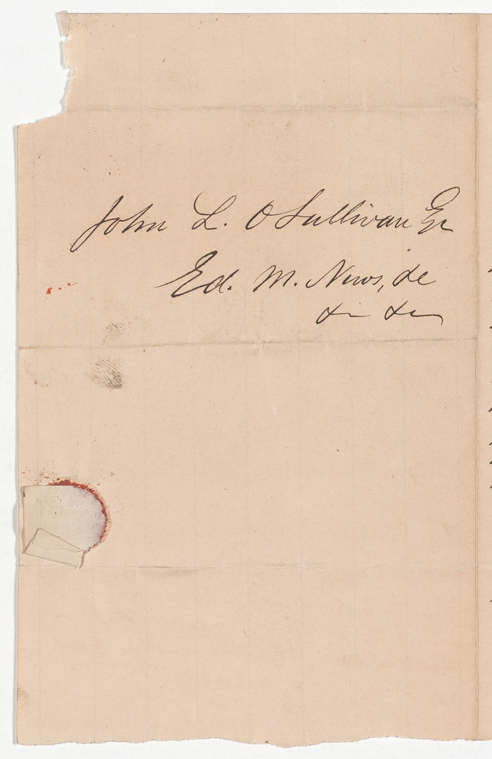 John L. O Sullivan Esq
Ed. M. News, &c
&c &c